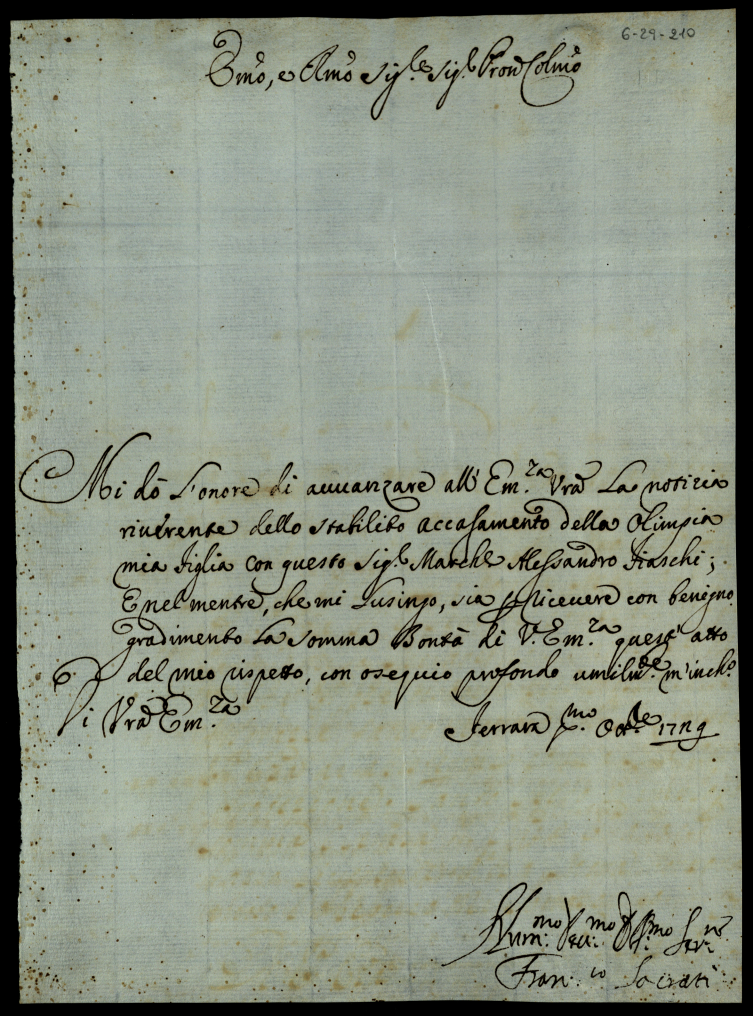 6-29-210
Emo, e Rmo Sig.re Sig.r Pron Colmo
Mi dò L'onore di auuanzare all' Em.za Vra La notizia
riuerente dello stabilito accasamento della Olimpia
mia Figlia con questo Sig.r March.e Alessandro Fiaschi;
E nel mentre, che mi Lusingo, sia p riceuere con benigno
gradimento La somma Bontà di V. Em.za quest' atto
del mio rispetto, con osequio profondo umilm.te m'inch.o
Di Vra Em.za
Ferrara p.mo Ott.re 1729
Hum.mo Deu.mo Obl.mo Ser.re
Fran.co Sacrati